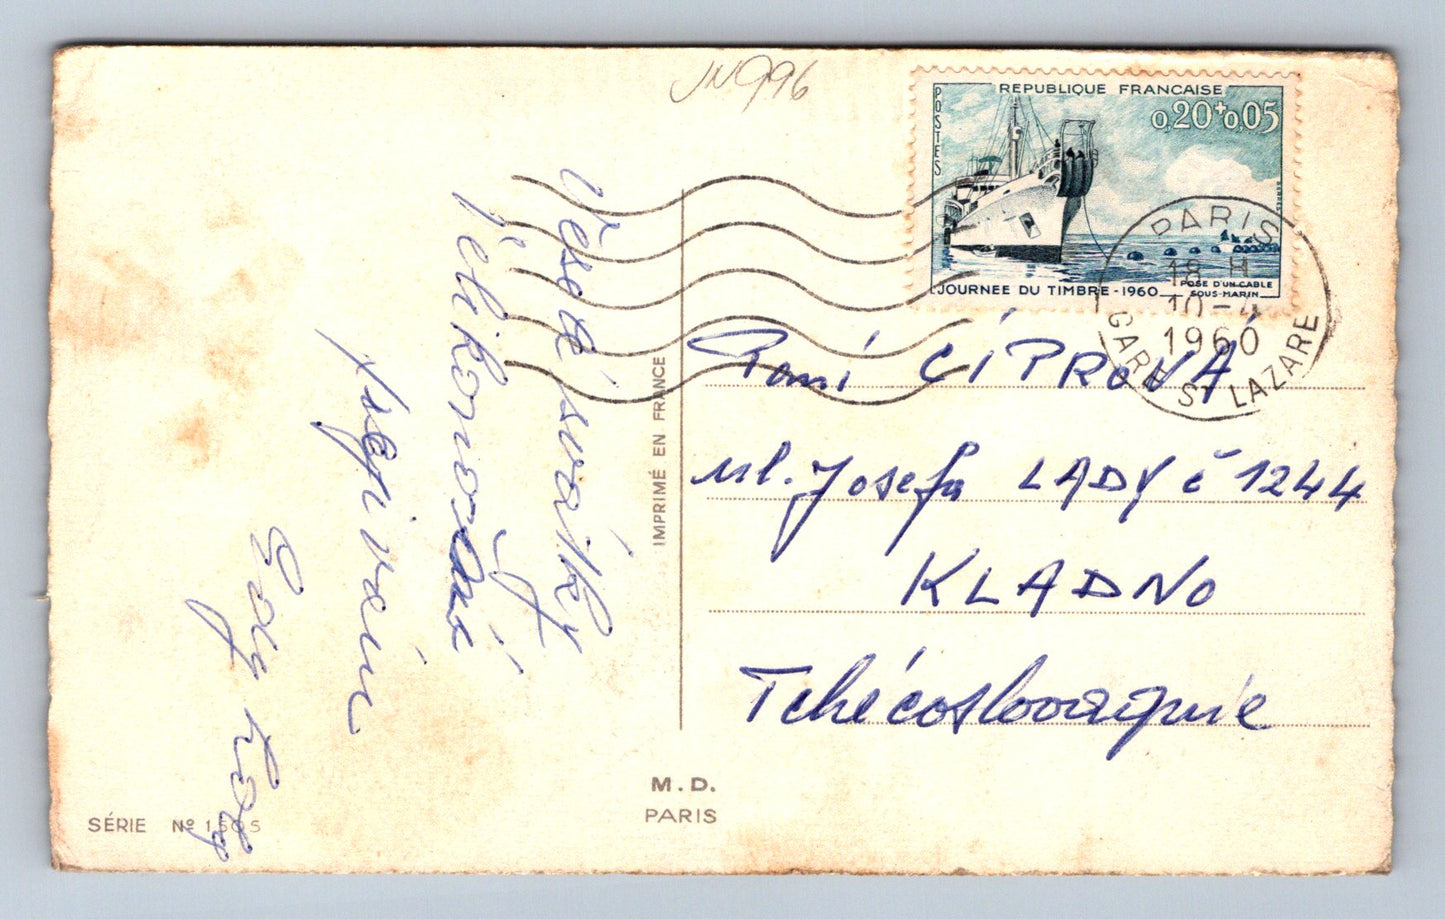 JN996
REPUBLIQUE FRANCAISE
POSTES
0,20+0,05
JOURNEE DU TIMBRE - 1960
POSE D'UN CABLE
SOUS-MARIN
PARIS
18 H
10-4
1960
GARE St LAZARE
Veselé
velikonoční
Paní CÍPROVÁ
ul. Josefa LADY č 1244
KLADNO
Tchécoslovaquie
IMPRIMÉ EN FRANCE
M.D.
PARIS
SÉRIE Nº 1505